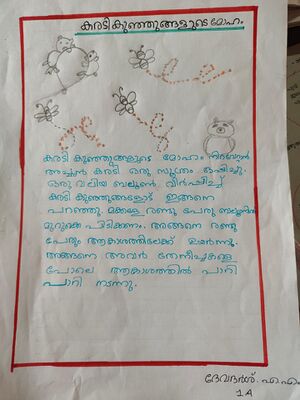 കരടികുഞ്ഞുങ്ങളുടെ മോഹം
കരടി കുഞ്ഞുങ്ങളുടെ മോഹം നിറവേറ്റാൻ
അച്ഛൻ കരടി ഒരു സൂത്രം ഒപ്പിച്ചു.
ഒരു വലിയ ബലൂൺ വീർപ്പിച്ച്
കരടി കുഞ്ഞുങ്ങളോട് ഇങ്ങനെ
പറഞ്ഞു. മക്കളേ രണ്ടു പേരും ബലൂണിൽ
മുറുക്കെ പിടിക്കണം. അങ്ങനെ രണ്ടു
പേരും ആകാശത്തിലേക്ക് ഉയർന്നു.
അങ്ങനെ അവർ തേനീച്ചകളെ
പോലെ ആകാശത്തിൽ പാറി
പാറി നടന്നു.
ദേവദർശ്. എ.എം
1 A